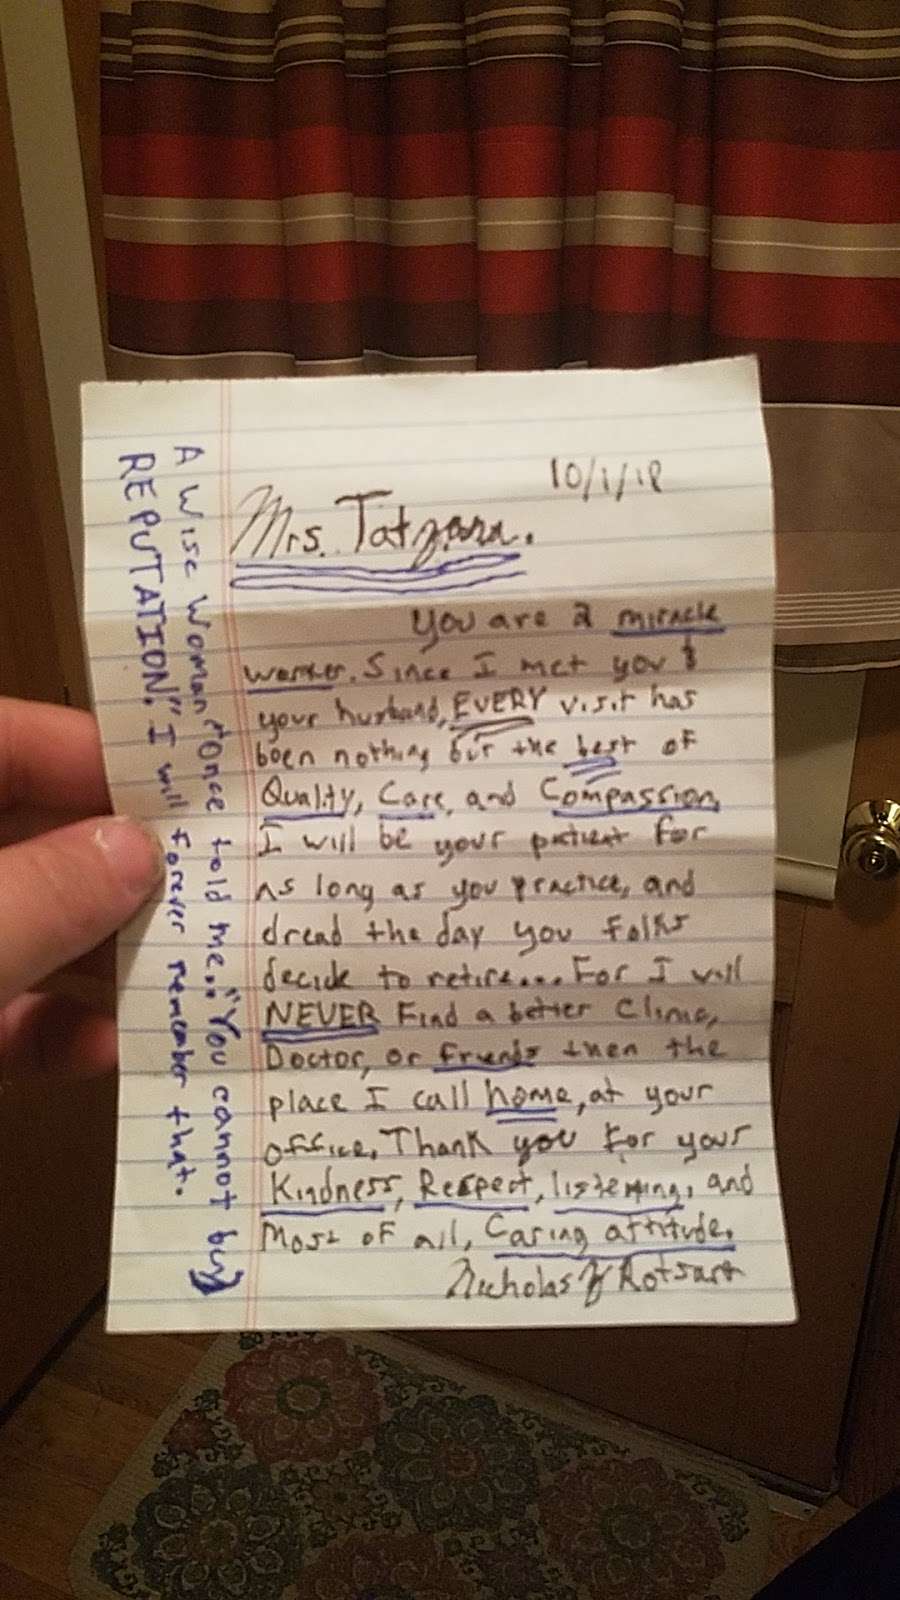 10/1/18
Mrs. Tatzara.
You are a miracle
worker. Since I met you &
your husband, EVERY visit has
been nothing but the best of
Quality, Care, and Compassion,
I will be your patient for
as long as you practice, and
dread the day you folks
decide to retire... For I will
NEVER Find a better Clinic,
Doctor, or friends then the
place I call home, at your
office. Thank you for your
Kindness, Respect, listening, and
Most of all, Caring attitude.
Nicholas J Rotsart
A wise woman "Once told me.. "You cannot buy
REPUTATION." I will forever remember that.